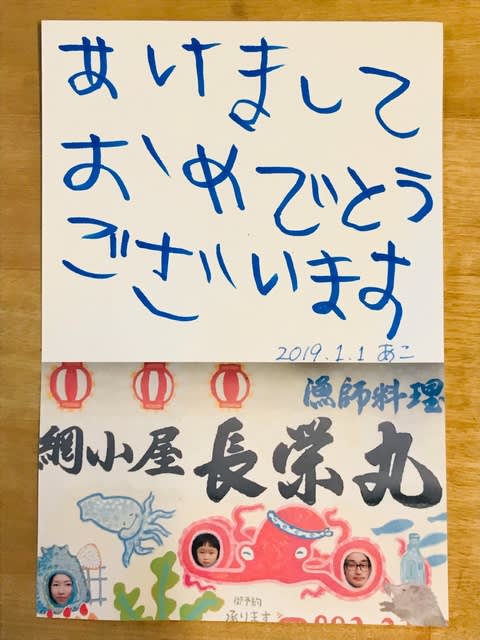 あけまして
おめでとう
ございます
2019.1.1 あこ
漁師料理
網小屋 長栄丸
御予約
承ります